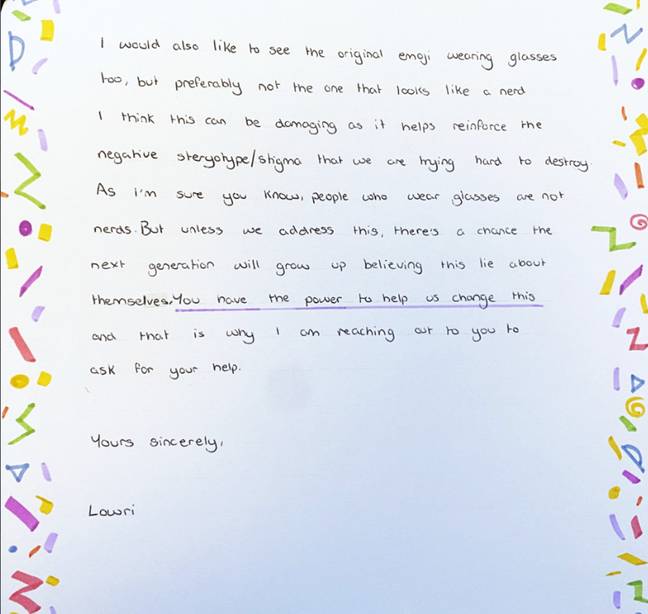 I would also like to see the original emoji wearing glasses
too, but preferably not the one that looks like a nerd
I think this can be damaging as it helps reinforce the
negative steryotype/stigma that we are trying hard to destroy.
As i'm sure you know, people who wear glasses are not
nerds. But unless we address this, there's a chance the
next generation will grow up believing this lie about
themselves. You have the power to help us change this
and that is why I am reaching out to you to
ask for your help.
Yours sincerely,
Lowri